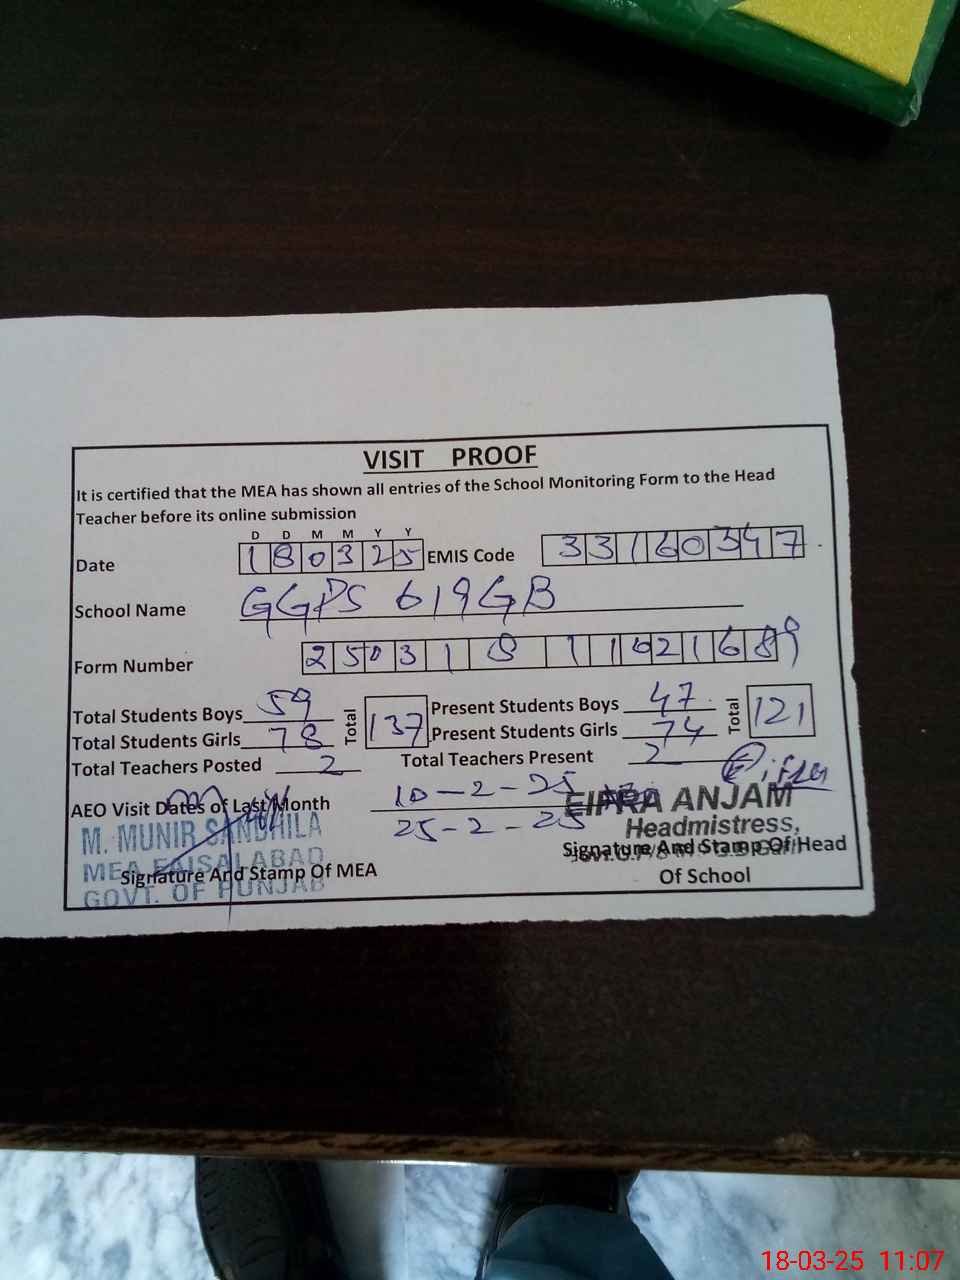 VISIT PROOF
It is certified that the MEA has shown all entries of the School Monitoring Form to the Head
Teacher before its online submission
D D M M Y Y
Date 180325 EMIS Code 33160347
School Name GGPS 619GB
Form Number 250318111621689
Total Students Boys 59 Total 137 Present Students Boys 47 Total 121
Total Students Girls 78 Present Students Girls 74
Total Teachers Posted 2 Total Teachers Present 2
AEO Visit Dates of Last Month 10-2-25
25-2-25
M. MUNIR SANDHILA
MEA FAISALABAD
GOVT. OF PUNJAB
Signature And Stamp Of MEA
ANJAM
Headmistress,
Signature And Stamp Of Head
Of School
18-03-25 11:07